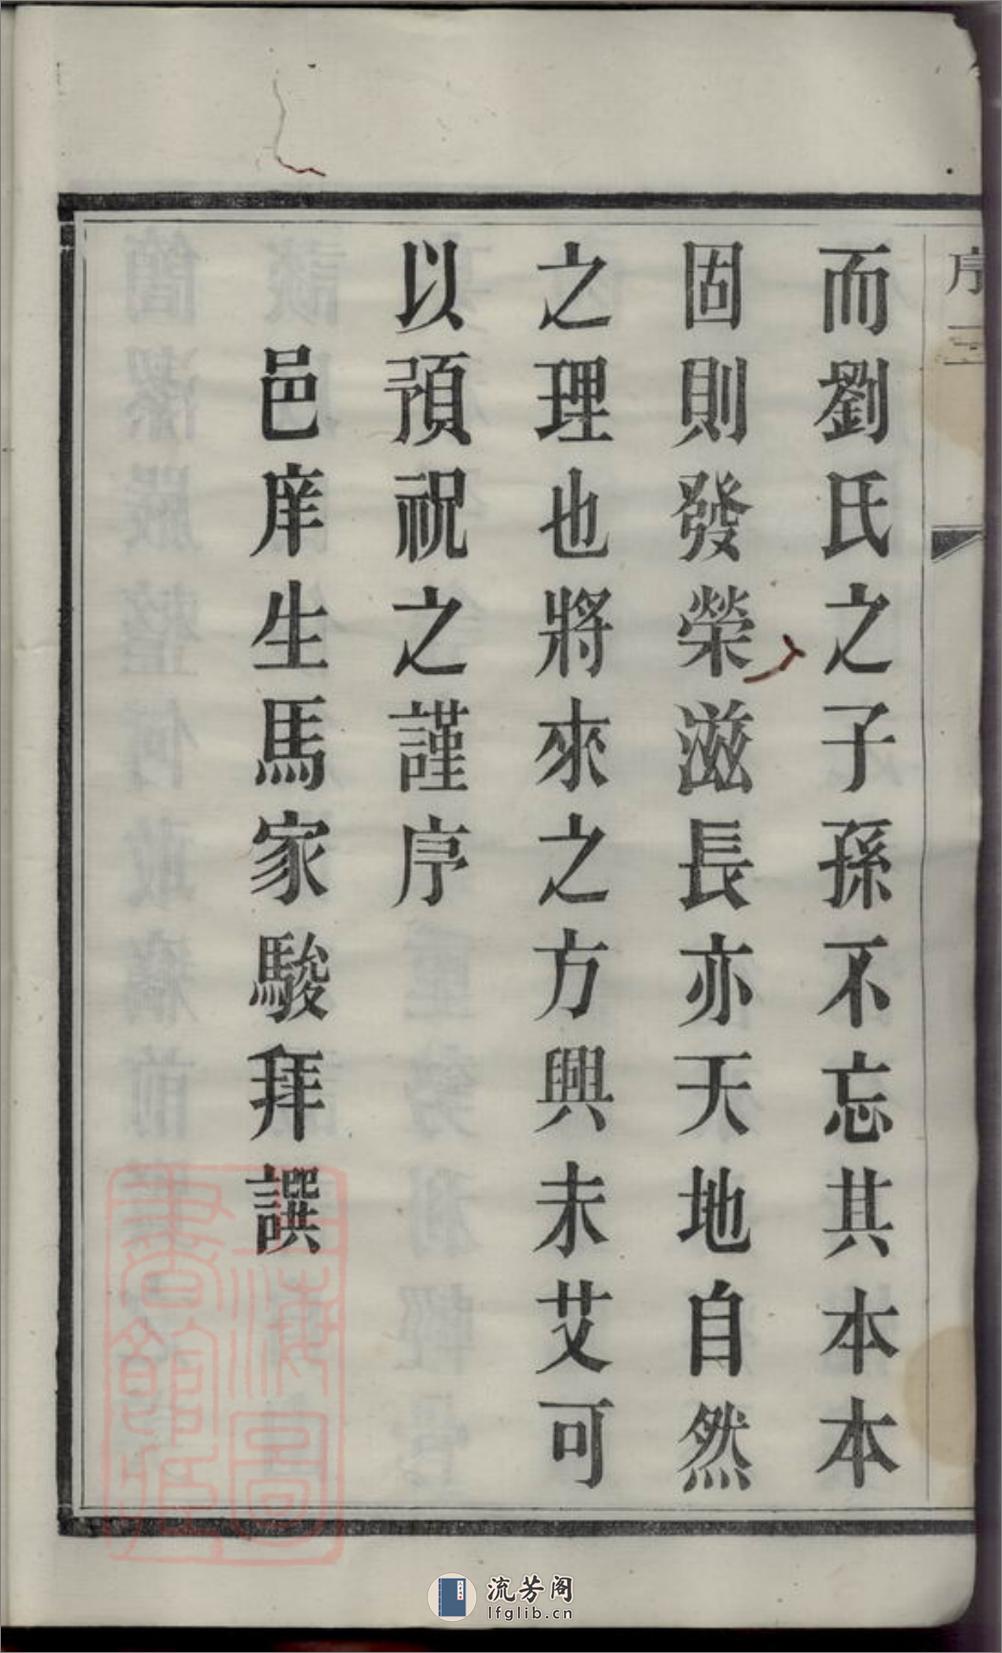 序 三
而劉氏之子孫不忘其本本
固則發榮滋長亦天地自然
之理也將來之方興未艾可
以預祝之謹序
邑庠生馬家駿拜譔
上海圖
書館藏
流芳阁
lfglib.cn